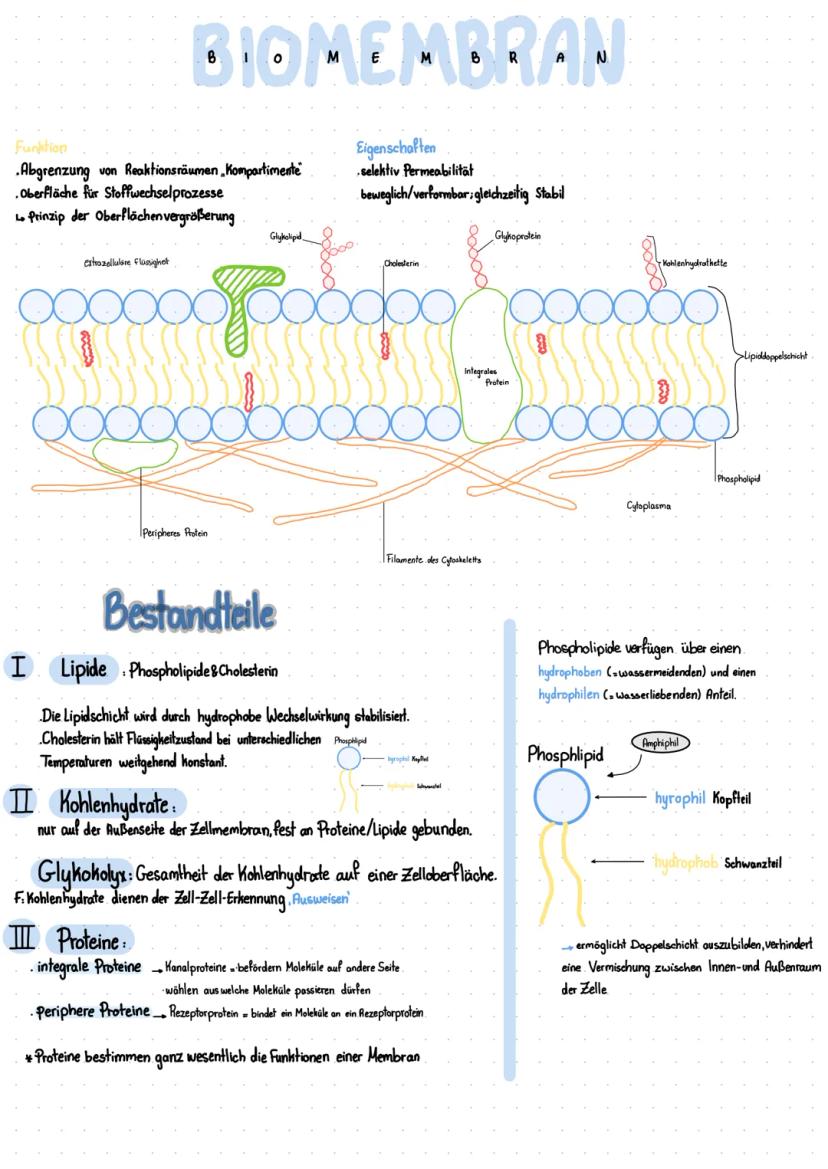 BIOMEMBRAN
B I O M E M B R A N
Funktion
.Abgrenzung von Reaktionsräumen „Kompartimente"
.Oberfläche für Stoffwechselprozesse
↳ Prinzip der Oberflächenvergrößerung
Eigenschaften
.selektiv Permeabilität
beweglich/verformbar; gleichzeitig Stabil
extrazelluläre Flüssigkeit
Glykolipid
Cholesterin
Glykoprotein
Kohlenhydratkette
Integrales
Protein
Lipiddoppelschicht
Phospholipid
Cytoplasma
Peripheres Protein
Filamente des Cytoskeletts
Bestandteile
I Lipide : Phospholipide & Cholesterin
.Die Lipidschicht wird durch hydrophobe Wechselwirkung stabilisiert.
.Cholesterin hält Flüssigkeitzustand bei unterschiedlichen
Temperaturen weitgehend konstant.
Phosphlipid
hyrophil Kopfteil
hydrophob Schwanzteil
II Kohlenhydrate:
nur auf der Außenseite der Zellmembran, fest an Proteine/Lipide gebunden.
Glykokolyx: Gesamtheit der Kohlenhydrate auf einer Zelloberfläche.
F: Kohlenhydrate dienen der Zell-Zell-Erkennung ‚Ausweisen'
III Proteine:
. integrale Proteine → Kanalproteine = befördern Moleküle auf andere Seite
·wählen aus welche Moleküle passieren dürfen
. periphere Proteine → Rezeptorprotein = bindet ein Moleküle an ein Rezeptorprotein
* Proteine bestimmen ganz wesentlich die Funktionen einer Membran
Phospholipide verfügen über einen
hydrophoben (=wassermeidenden) und einen
hydrophilen (=wasserliebenden) Anteil.
Amphiphil
Phosphlipid
hyrophil Kopfteil
hydrophob Schwanzteil
→ ermöglicht Doppelschicht auszubilden, verhindert
eine Vermischung zwischen Innen- und Außenraum
der Zelle